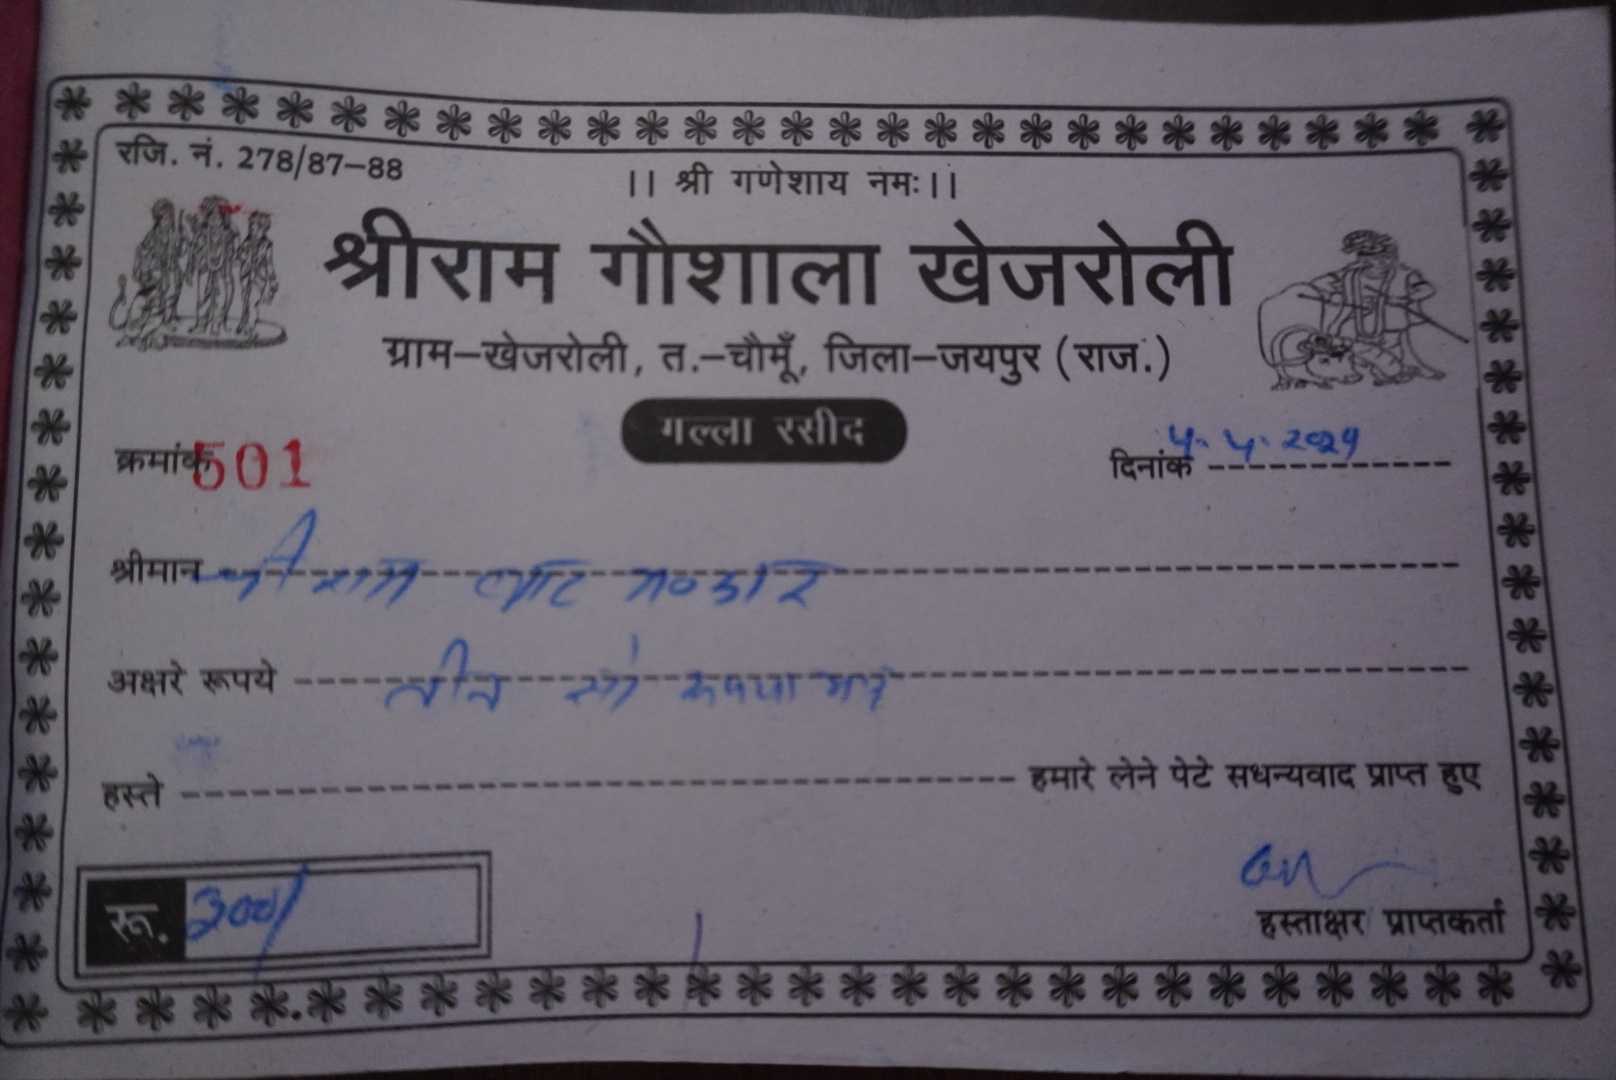 रजि. नं. 278/87-88
।। श्री गणेशाय नमः।।
श्रीराम गौशाला खेजरोली
ग्राम-खेजरोली, त.-चौमूँ, जिला-जयपुर (राज.)
गल्ला रसीद
क्रमांक 501
दिनांक
श्रीमान श्री राम
अक्षरे रूपये तीन सो रूपया मात्र
हस्ते हमारे लेने पेटे सधन्यवाद प्राप्त हुए
रू. 300/
हस्ताक्षर प्राप्तकर्ता